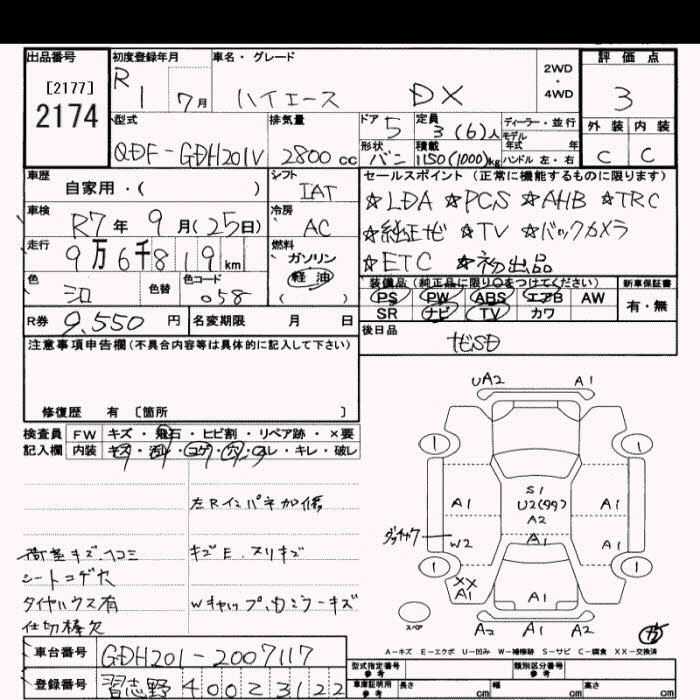 出品番号 初度登録年月 車名・グレード 2WD・4WD 評価点
[2177]
2174
R1 7月 ハイエース DX 3
型式 排気量 ドア 定員 ディーラー・並行 外装 内装
QDF-GDH201V 2800cc 5 3(6)人 モデル年式 年 C C
形状 積載 ハンドル 左・右
バン 1150(1000)kg
車歴 自家用・( ) シフト IAT セールスポイント(正常に機能するものに限ります)
車検 R7年9月(25日) 冷房 AC ☆LDA ☆PCS ☆AHB ☆TRC
走行 9万6千819km 燃料 ガソリン 軽油 ( ) ☆純正ナビ ☆TV ☆バックカメラ
☆ETC ☆初出品
色 シロ 色替 色コード 058 装備品(純正品に限り○をつけてください) 新車保証書
PS PW ABS エアB AW 有・無
SR ナビ TV カワ
R券 9.550円 名変期限 月 日 後日品
注意事項申告欄(不具合内容等は具体的に記入して下さい) ナビSD
修復歴 有 [箇所 ]
検査員 FW キズ・飛石・ヒビ割・リペア跡・×要
記入欄 内装 キズ・汚レ・コゲ・穴・スレ・キレ・破レ
左Rインパネ加修
荷室キズ、ヘコミ キズE、スリキズ
シートコゲ穴
タイヤハウス有 Wキャップ、カミラーキズ
仕切棒欠
UA2 A1
1 1
S1
A1 U2(99) A1
A2
W2 A1 A1
1 1
XX
A1 A1
スペア
A2 A1 A2
A-キズ E-エクボ U-凹み W-補修跡 S-サビ C-腐食 XX-交換済
車台番号 GDH201-2007117
登録番号 習志野 400 そ 3122
型式指定番号 参考 類別区分番号 参考
車庫証明用 参考 長さ cm 幅 cm 高さ cm